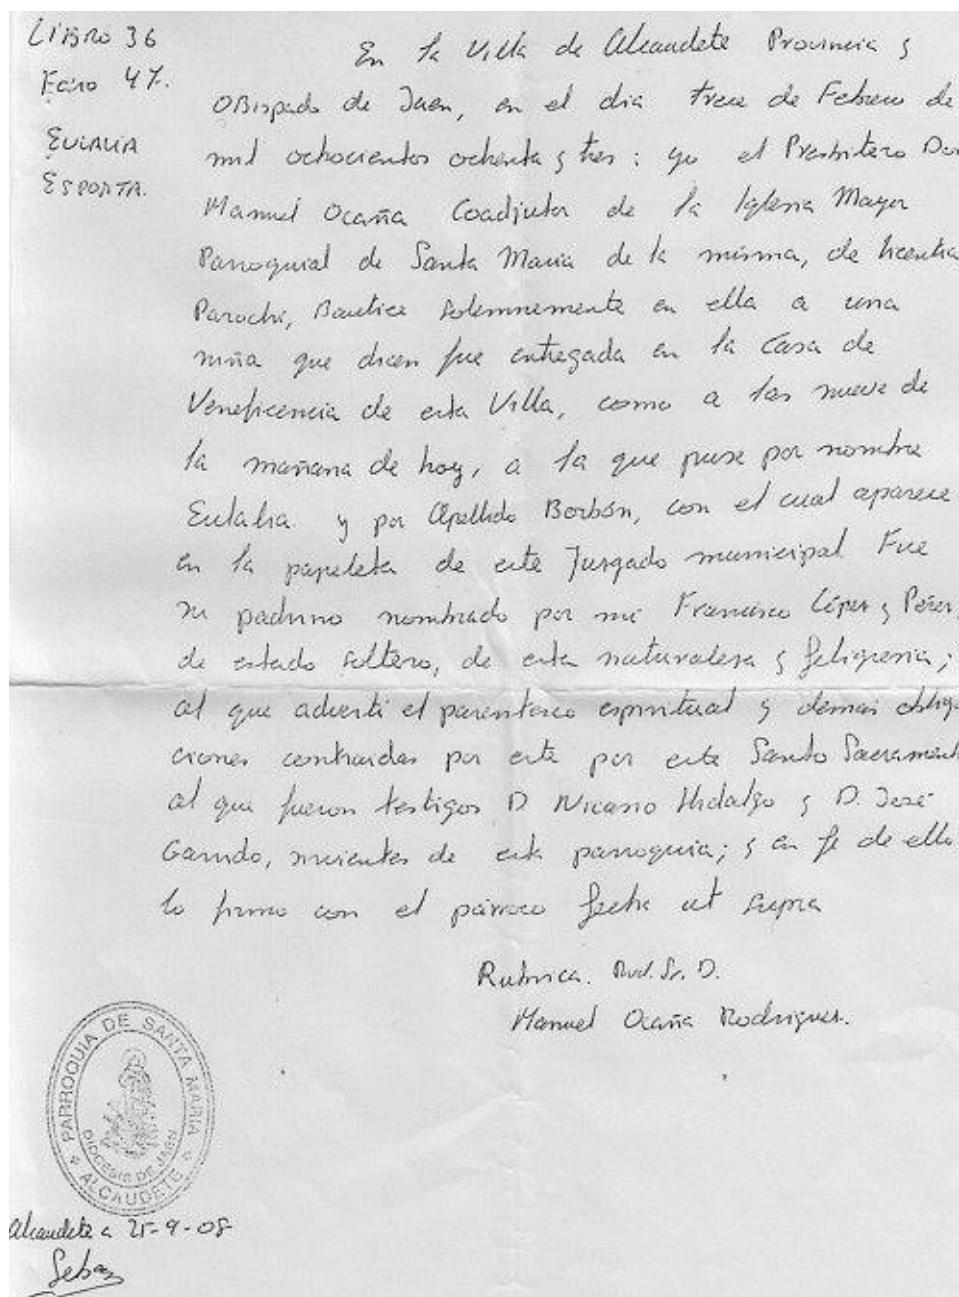 LIBRO 36
FOLIO 47.
EULALIA
ESPOSTA.
En la Villa de Alcaudete Provincia y
Obispado de Jaen, en el dia trece de Febrero de
mil ochocientos ochenta y tres: yo el Presbitero Don
Manuel Ocaña Coadjutor de la Iglesia Mayor
Parroquial de Santa Maria de la misma, de licentia
Parochi, Bautice solemnemente en ella a una
niña que dicen fue entregada en la Casa de
Veneficencia de esta Villa, como a las nueve de
la mañana de hoy, a la que puse por nombre
Eulalia y por Apellido Borbón, con el cual aparece
en la papeleta de este Juzgado municipal Fue
su padrino nombrado por mi Francisco López y Pérez,
de estado soltero, de esta naturaleza y feligresia;
al que adverti el parentesco espiritual y demás obliga
ciones contraidas por este por este Santo Sacramento
al que fueron testigos D Nicasio Hidalgo y D. José
Garrido, sirvientes de esta parroquia; y en fe de ello
lo firmo con el párroco fecha ut supra
Rubrica. Rvd. Sr. D.
Manuel Ocaña Rodriguez.
PARROQUIA DE SANTA MARIA
DIOCESIS DE JAEN
ALCAUDETE
Alcaudete a 25-9-08